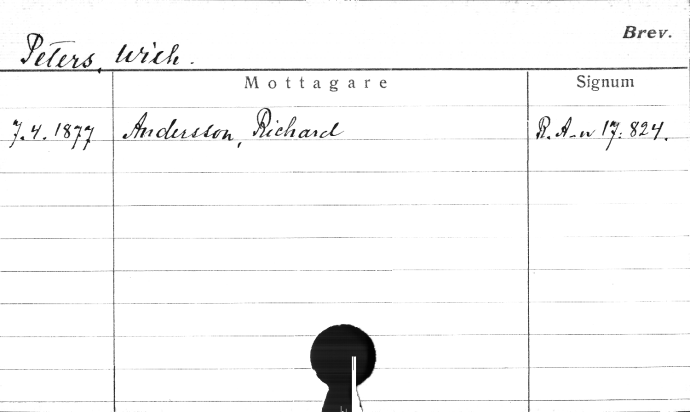 Brev.
Peters, Wilh.
Mottagare Signum
7.4. 1877 Andersson, Richard R. A-n 17: 824.